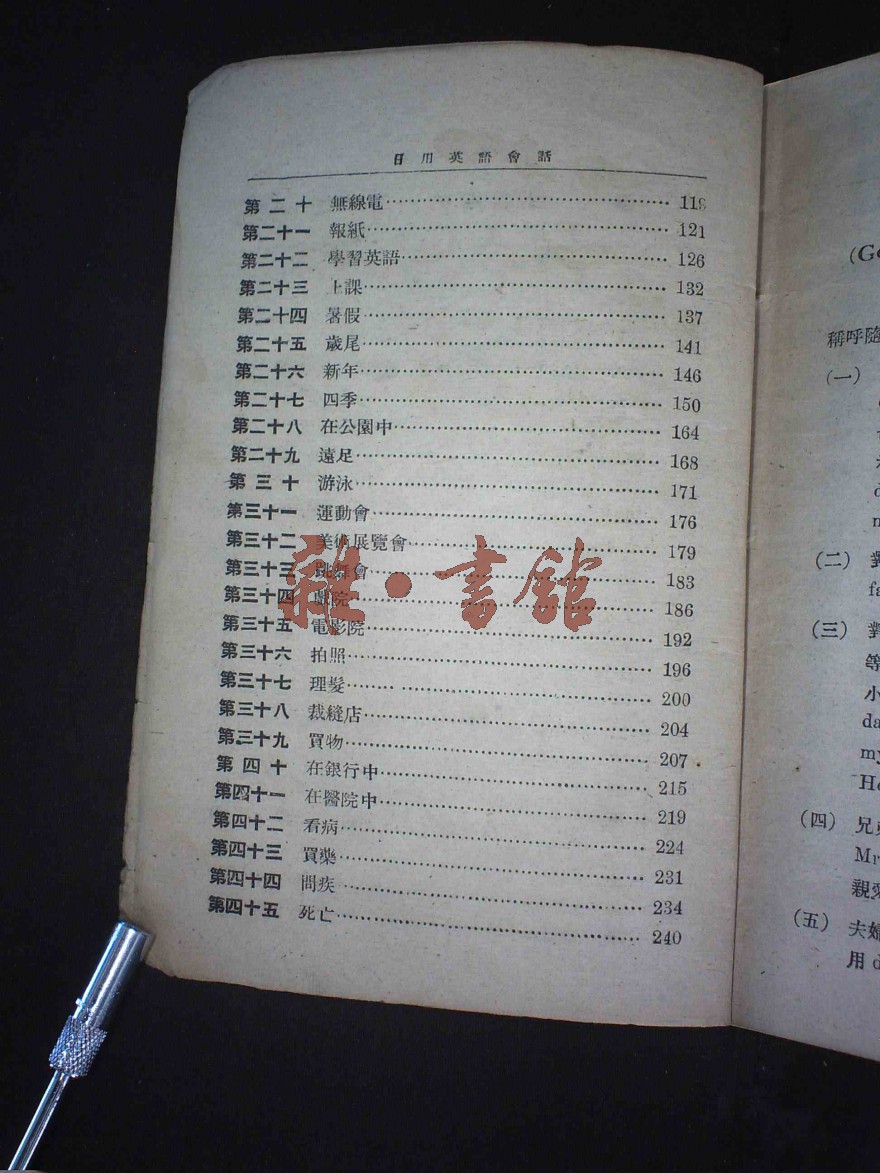 日用英語會話
第二十 無線電 118
第二十一 報紙 121
第二十二 學習英語 126
第二十三 上課 132
第二十四 暑假 137
第二十五 歲尾 141
第二十六 新年 146
第二十七 四季 150
第二十八 在公園中 164
第二十九 遠足 168
第三十 游泳 171
第三十一 運動會 176
第三十二 美術展覽會 179
第三十三 跳舞會 183
第三十四 戲院 186
第三十五 電影院 192
第三十六 拍照 196
第三十七 理髮 200
第三十八 裁縫店 204
第三十九 買物 207
第四十 在銀行中 215
第四十一 在醫院中 219
第四十二 看病 224
第四十三 買藥 231
第四十四 問疾 234
第四十五 死亡 240
雜·書館
(G
稱呼隨
(一)
(二) 對
fa
(三) 對
等
小
da
my
He
(四) 兄弟
Mr
親愛
(五) 夫婦
用 d